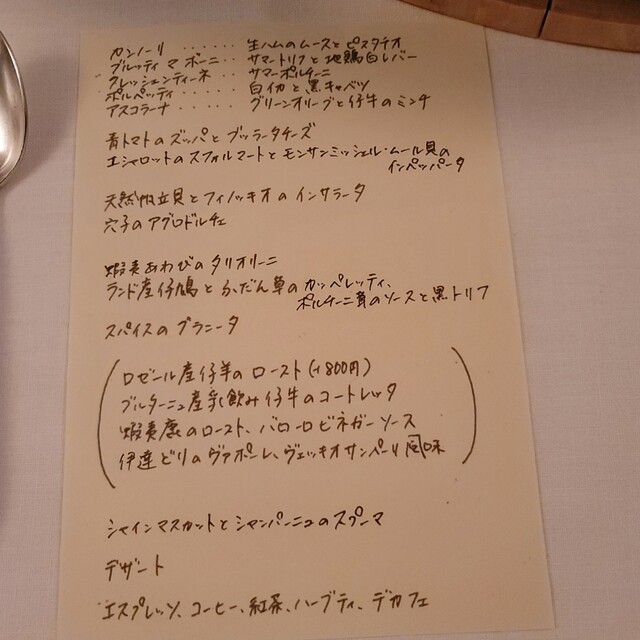 カンノーリ ‥‥‥ 生ハムのムースとピスタチオ
ブルッティ マ ボーニ ‥ サマートリュフと地鶏白レバー
クレッシェンティーネ ‥ サマーポルチーニ
ポルペッティ ‥‥‥ 白イカと黒キャベツ
アスコラーナ ‥‥‥ グリーンオリーブと仔牛のミンチ
青トマトのズッパとブッラータチーズ
エシャロットのスフォルマートとモンサンミッシェル・ムール貝の
インペッパータ
天然帆立貝とフィノッキオのインサラータ
穴子のアグロドルチェ
蝦夷あわびのタリオリーニ
ランド産仔鳩とかだん草のカッペレッティ、
ポルチーニ茸のソースと黒トリフ
スパイスのグラニータ
ロゼール産仔羊のロースト(+800円)
ブルターニュ産乳飲み仔牛のコートレッタ
蝦夷鹿のロースト、バローロビネガーソース
伊達どりのヴァポーレ、ヴェッキオサンペーリ風味
シャインマスカットとシャンパーニュのスプーマ
デザート
エスプレッソ、コーヒー、紅茶、ハーブティ、デカフェ